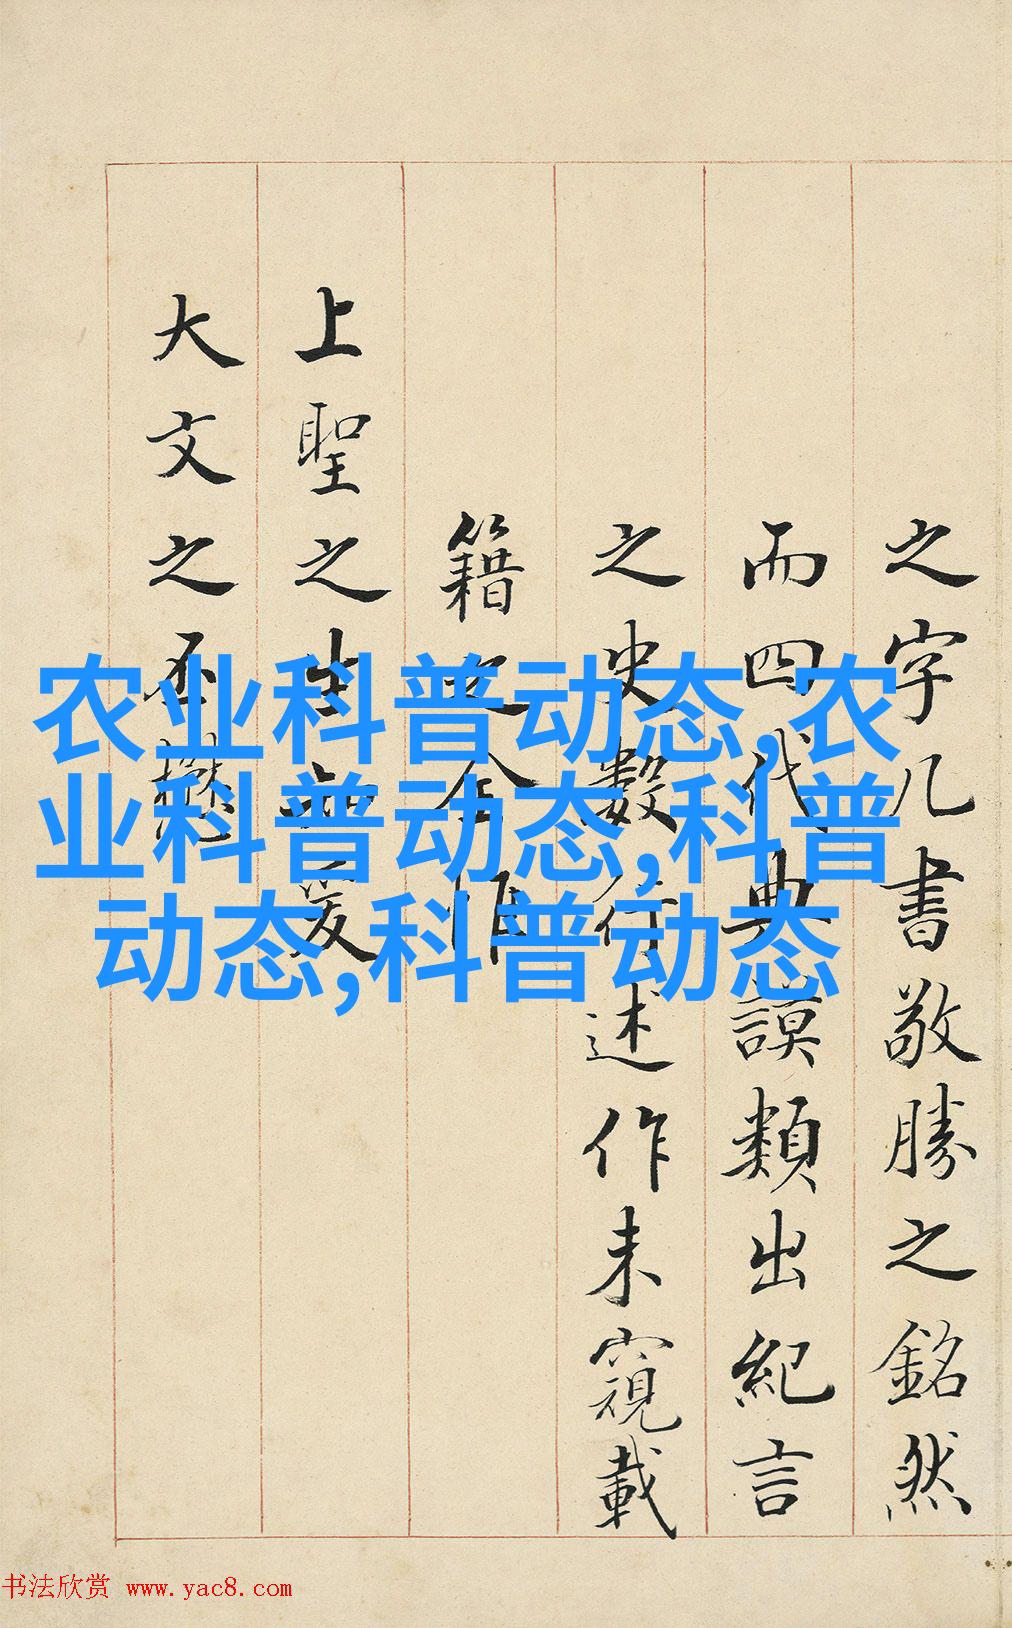 之字几書敬勝之銘然
而四代典謨類出紀言
之史數行述作未窺載
籍之全惟
上聖之生知爰
大文之丕懋
农业科普动态,农
业科普动态,科普
动态,科普动态
书法欣赏 www.yac8.com